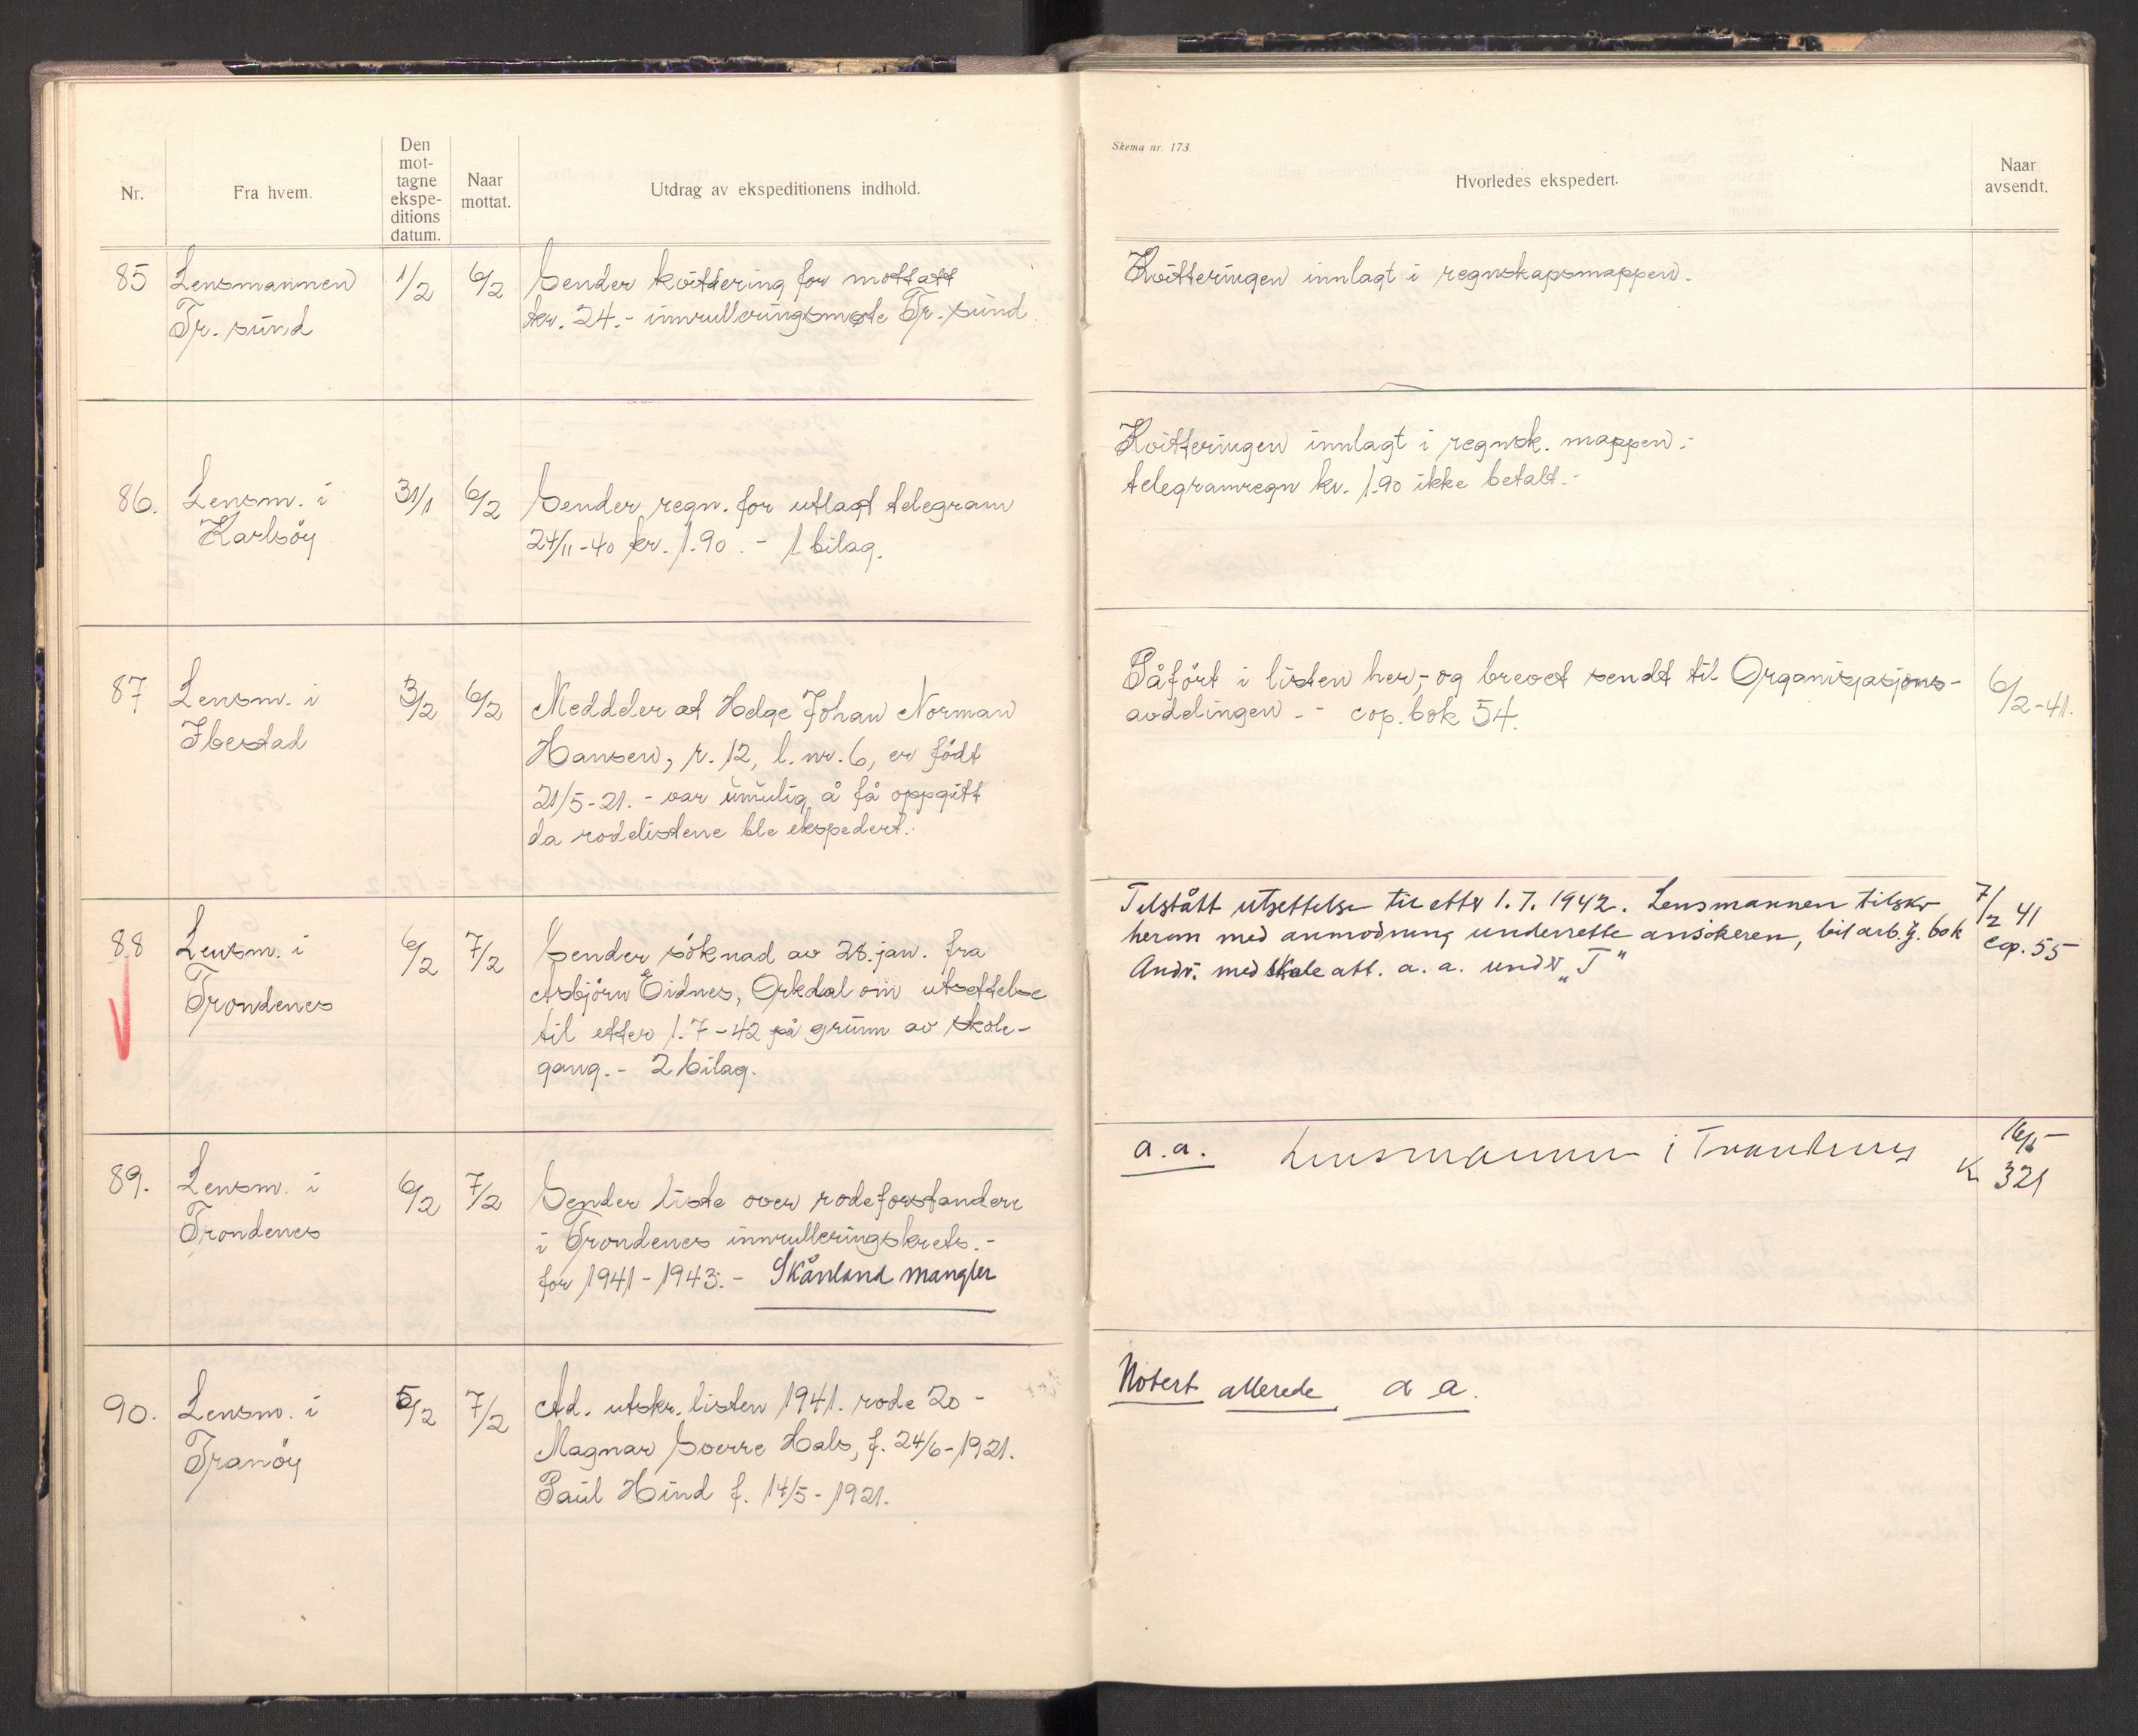 Nr.
Fra hvem.
Den
mot-
tagne
ekspe-
ditions
datum.
Naar
mottat.
Utdrag av ekspeditionens indhold.
Skema nr. 173.
Hvorledes ekspedert.
Naar
avsendt.
85 Lensmannen 1/2 6/2 Sender kvittering for mottatt
Tr. sund kr. 24.- innrulleringsmøte Tr. sund.
Kvitteringen innlagt i regnskapsmappen.-
86. Lensm. i 31/1 6/2 Sender regn. for utlagt telegram
Karlsöy 24/11-40 kr. 1.90.- 1 bilag.
Kvitteringen innlagt i regnsk. mappen.-
telegramregn kr. 1.90 ikke betalt.-
87 Lensm. i 3/2 6/2 Meddeler at Helge Johan Norman
Ibestad Hansen, r. 12, l. nr. 6, er födt
21/5-21.- var umulig å få oppgitt
da rodelistene ble ekspedert.
Påfört i listen her,- og brevet sendt til Organisasjons-
avdelingen.- cop. bok 54. 6/2-41.
88 Lensm. i 6/2 7/2 Sender söknad av 28. jan. fra
Trondenes Asbjörn Eidnes, Orkdal om utsettelse
til etter 1.7-42 på grunn av skole-
gang.- 2 bilag.
Tilstått utsettelse til etter 1.7.1942. Lensmannen tilskr 7/2 41
herom med anmodning underrette ansökeren, bok cop. 55
Andr. med att. a. a. under "T"
89. Lensm. i 6/2 7/2 Sender liste over rodeforstandere
Trondenes i Trondenes innrulleringskrets.-
for 1941-1943.- Skånland mangler
a.a. Lensmannen i Trondenes 16/5
K 321
90. Lensm. i 5/2 7/2 Ad. utskr. listen 1941. rode 20 -
Tranöy Magnar Sverre Hals, f. 24/6-1921.
Paul Hind f. 14/5-1921.
Notert allerede a a.